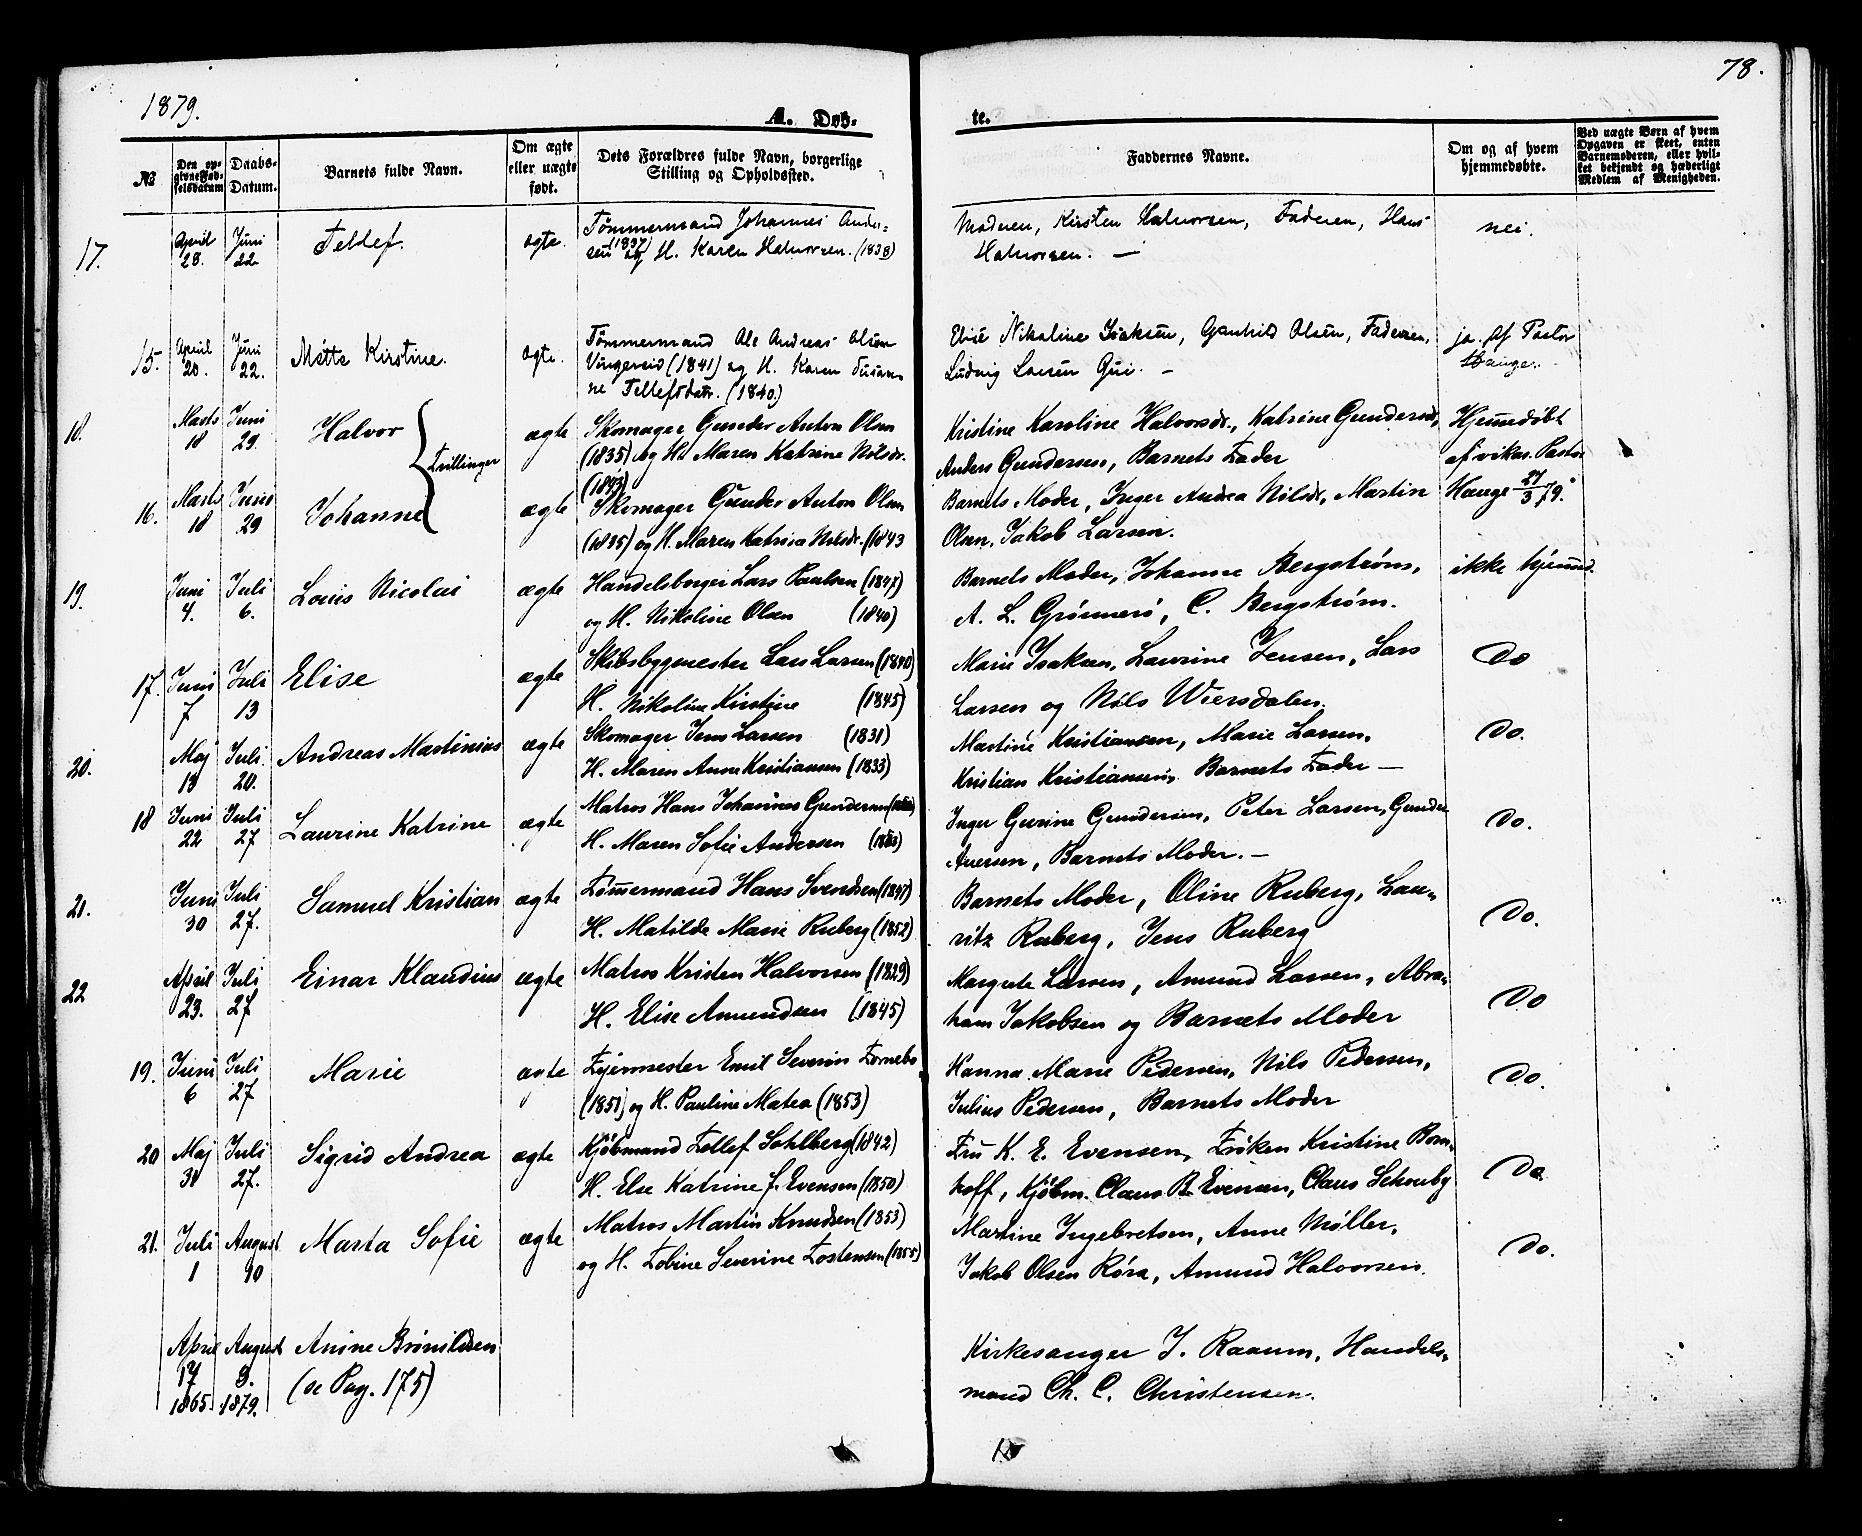 78.
1879.
A. Døb-
te.
No
Den op-
givne Fød-
selsdatum.
Daabs-
Datum.
Barnets fulde Navn.
Om ægte
eller uægte
født.
Dets Forældres fulde Navn, borgerlige
Stilling og Opholdssted.
Faddernes Navne.
Om og af hvem
hjemmedøbte.
Ved uægte Børn af hvem
Opgaven er skeet, enten
Barnemoderen, eller hvil-
ket bekjendt og hæderligt
Medlem af Menigheden.
17. April 28. Juni 22 Tellef. ægte. Tømmermand Johannes Ander-
sen (1837) og H. Karen Halvorsen. (1838)
Moderen, Kirsten Halvorsen, Faderen, Hans
Halvorsen. —
nei.
15. April 20. Juni 22. Mette Kirstine. ægte. Tømmermand Ole Andreas Olsen
Vingereid (1841) og H. Karen Susan-
ne Tellefsdatr. (1840.)
Elise Nikoline Isaksen, Gunhild Olsen, Faderen,
Ludvig Larsen Gui. —
ja. af Pastor
Hauge.
18. Marts 18 Juni 29. Halvor ægte Skomager Gunder Anton Olsen
(1835) og H. Maren Katrine Nilsdr.
(1843)
Tvillinger
Kristine Karoline Halvorsdr., Katrine Gundersdr,
Anders Gundersen, Barnets Fader
Hjemmedøbt
af vikar. Pastor
Hauge 27/3 79.
16. Marts 18 Juni 29 Johanne ægte Skomager Gunder Anton Olsen
(1835) og H. Maren Katrine Nilsdr. (1843
Barnets Moder, Inger Andrea Nilsdr, Martin
Olsen, Jakob Larsen.
19. Juni 4. Juli 6. Louis Nicolai ægte Handelsborger Lars Paulsen
og H. Nikoline Olsen (1840)
Barnets Moder, Johanne Bergstrøm,
A. L. Grønnerø, C. Bergstrøm.
ikke hjemmed.
17. Juni 7 Juli 13 Elise ægte Skibsbygmester Lars Larsen (1840)
H. Nikoline Kirstine (1845)
Marie Isaksen, Laurine Jensen, Lars
Larsen og Nils Wiersdalen.
Do
20. Maj 13 Juli 20. Andreas Martinius ægte Skomager Jens Larsen (1831)
H. Maren Anne Kristiansen (1833)
Martine Kristiansen, Marie Larsen,
Kristian Kristiansen, Barnets Fader —
Do.
18 Juni 22 Juli 27 Laurine Katrine ægte Matros Hans Johannes Gundersen
H. Maren Sofie Andersen
Inger Gurine Gundersen, Peter Larsen, Gunder
Aversen, Barnets Moder. —
Do.
21. Juni 30 Juli 27. Samuel Kristian ægte Tømmermand Hans Svendsen (1847)
H. Matilde Marie Ruberg (1852)
Barnets Moder, Oline Ruberg, Lau-
ritz Ruberg, Jens Ruberg
Do.
22 April 23. Juli 27 Einar Klaudius ægte Matros Kristen Halvorsen (1829)
H. Elise Amundsen (1845)
Margrete Larsen, Amund Larsen, Abra-
ham Jakobsen og Barnets Moder
Do
19. Juni 6 Juli 27 Marie ægte Fyrmester Emil Severin Fornebo
(1851) og H. Pauline Matea (1853)
Hanna Marie Pedersen, Nils Pedersen,
Julius Pedersen, Barnets Moder
Do.
20 Maj Juli 27. Sigrid Andrea ægte Kjøbmand Tellef Dahlberg (1842)
H. Else Katrine f. Evensen (1850)
Fru K. E. Evensen, Frøken Kristine Born-
hoff, Kjøbm. Claus B. Evensen, Claus Schouby
Do.
21. Juli 1 August 10 Marta Sofie ægte Matros Martin Knudsen (1853)
og H. Tobine Severine Tostensen (1855)
Martine Ingebretsen, Anne Møller,
Jakob Olsen Røra, Amund Halvorsen.
Do.
April 17 1865 August 3. 1879. Anine Brønildsen
(se Pag. 175)
Kirkesanger J. Raaum, Handels-
mand Ch. C. Christensen.